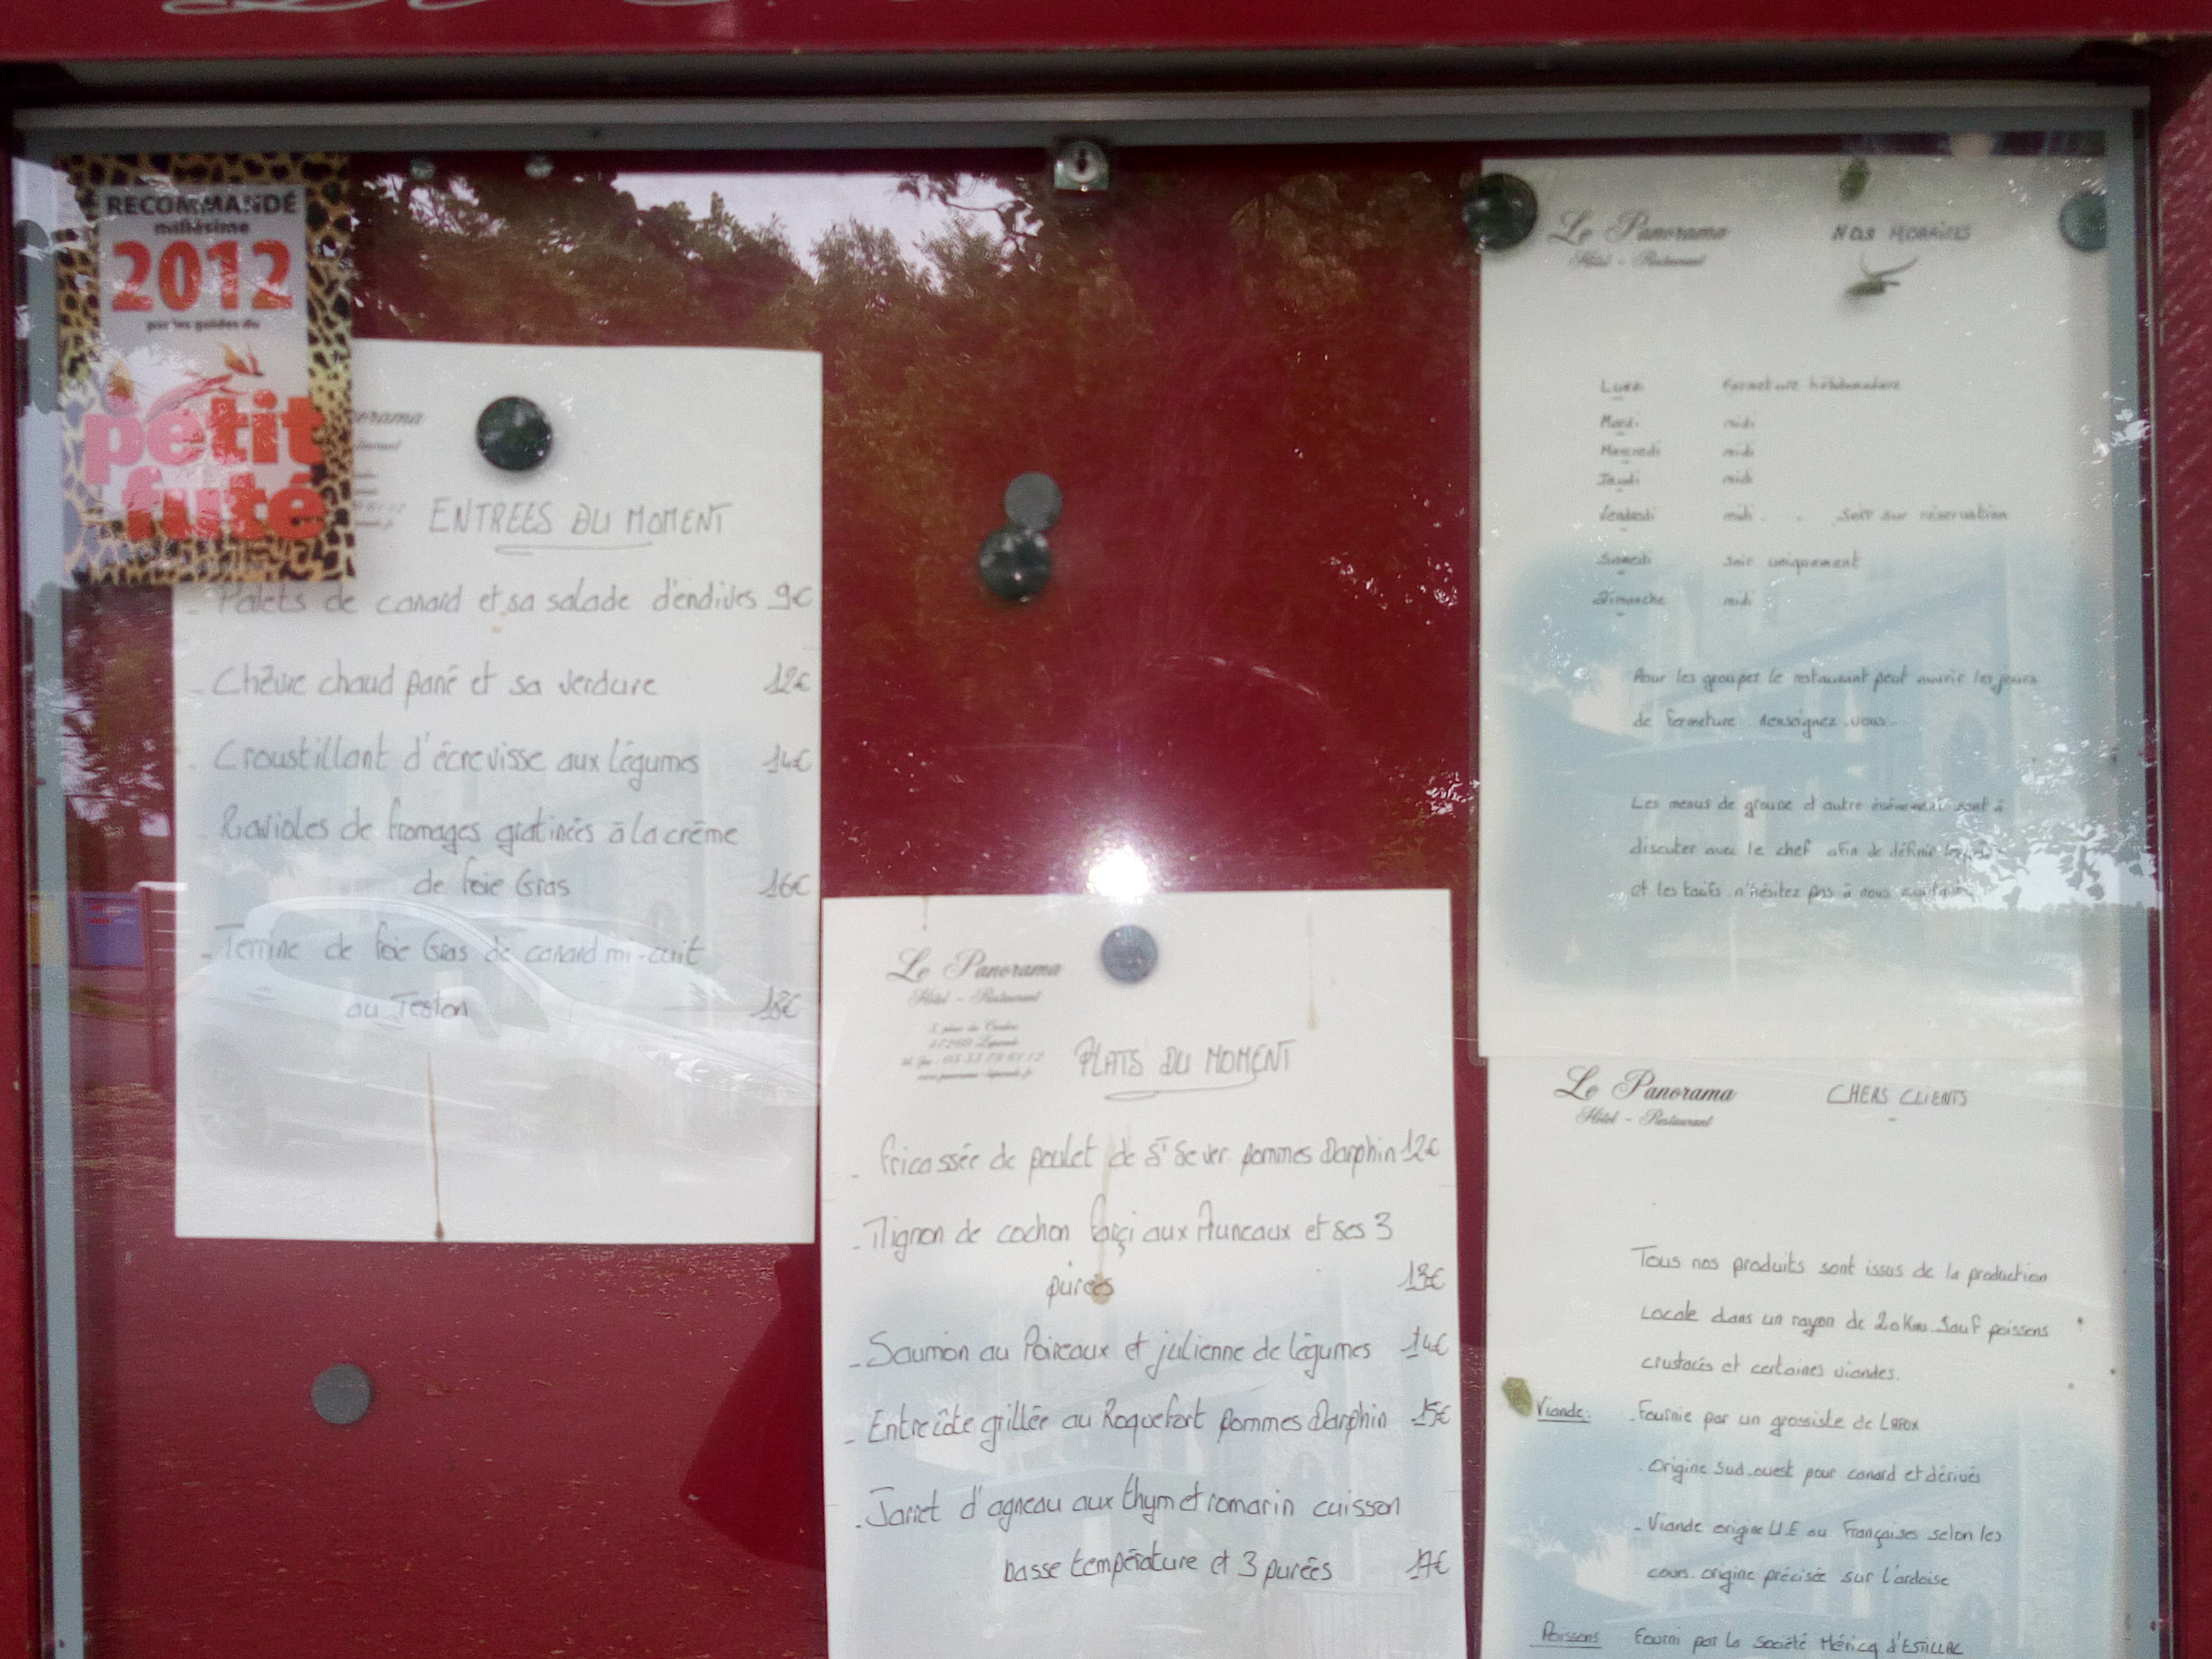 RECOMMANDÉ
millésime
2012
par les guides du
petit
futé
ENTREES DU MOMENT
Palets de canard et sa salade d'endives 9€
- Chèvre chaud pané et sa verdure 12€
- Croustillant d'écrevisse aux légumes 14€
Ravioles de fromages gratinées à la crème
de foie Gras 16€
- Terrine de foie Gras de canard mi-cuit
au 18€
Le Panorama
Hôtel - Restaurant
PLATS DU MOMENT
- Fricassée de poulet de St Sever pommes Darphin 12€
- Mignon de cochon farçi aux Pruneaux et ses 3
purées 13€
- Saumon au Poireaux et julienne de légumes 14€
- Entrecôte grillée au Roquefort pommes Darphin 15€
- Jarret d'agneau aux thym et romarin cuisson
basse température et 3 purées 17€
Le Panorama
Hôtel - Restaurant
NOS HORAIRES
Lundi Fermeture hebdomadaire
Mardi midi
Mercredi midi
Jeudi midi
Vendredi midi - Soir sur réservation
Samedi Soir uniquement
Dimanche midi
Pour les groupes le restaurant peut ouvrir les jours
de fermeture. Renseignez-vous.
Les menus de groupe et autre événement sont à
discuter avec le chef afin de définir
et les tarifs. n'hésitez pas à nous
Le Panorama
Hôtel - Restaurant
CHERS CLIENTS
Tous nos produits sont issus de la production
Locale dans un rayon de 20 Kms. Sauf poissons
crustacés et certaines viandes.
Viande: . Fournie par un grossiste de
. Origine Sud-ouest pour canard et dérivés
- Viande origine U.E ou Françaises selon les
cours. origine précisée sur l'ardoise
Poissons Fourni par la Société Méricq d'ESTILLAC